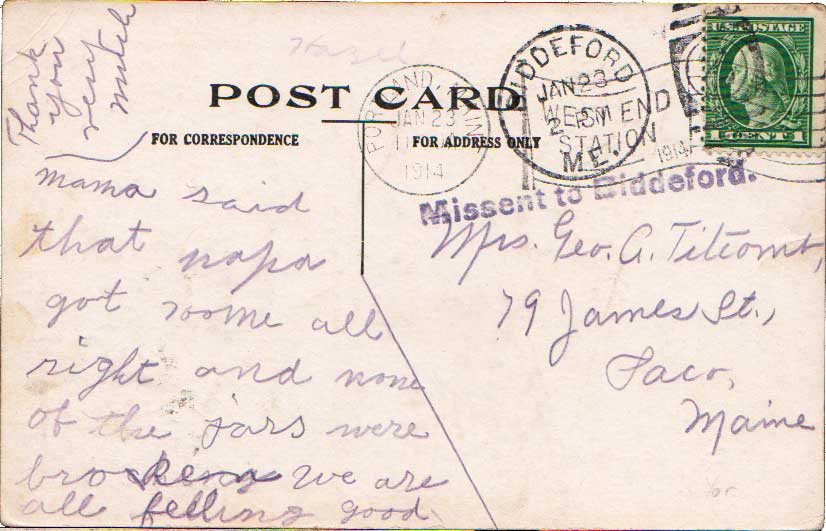 Thank
you
very
much
Hazel
POST CARD
FOR CORRESPONDENCE
FOR ADDRESS ONLY
mama said
that papa
got rome all
right and none
of the jars were
brocken we are
all felling good
PORTLAND, MAINE
JAN 23
1914
BIDDEFORD
JAN 23
2 PM
ME.
WEST END
STATION
1914
U.S. POSTAGE
1 CENT 1
Missent to Biddeford.
Mrs. Geo. A. Titcomb,
79 James St.,
Saco,
Maine